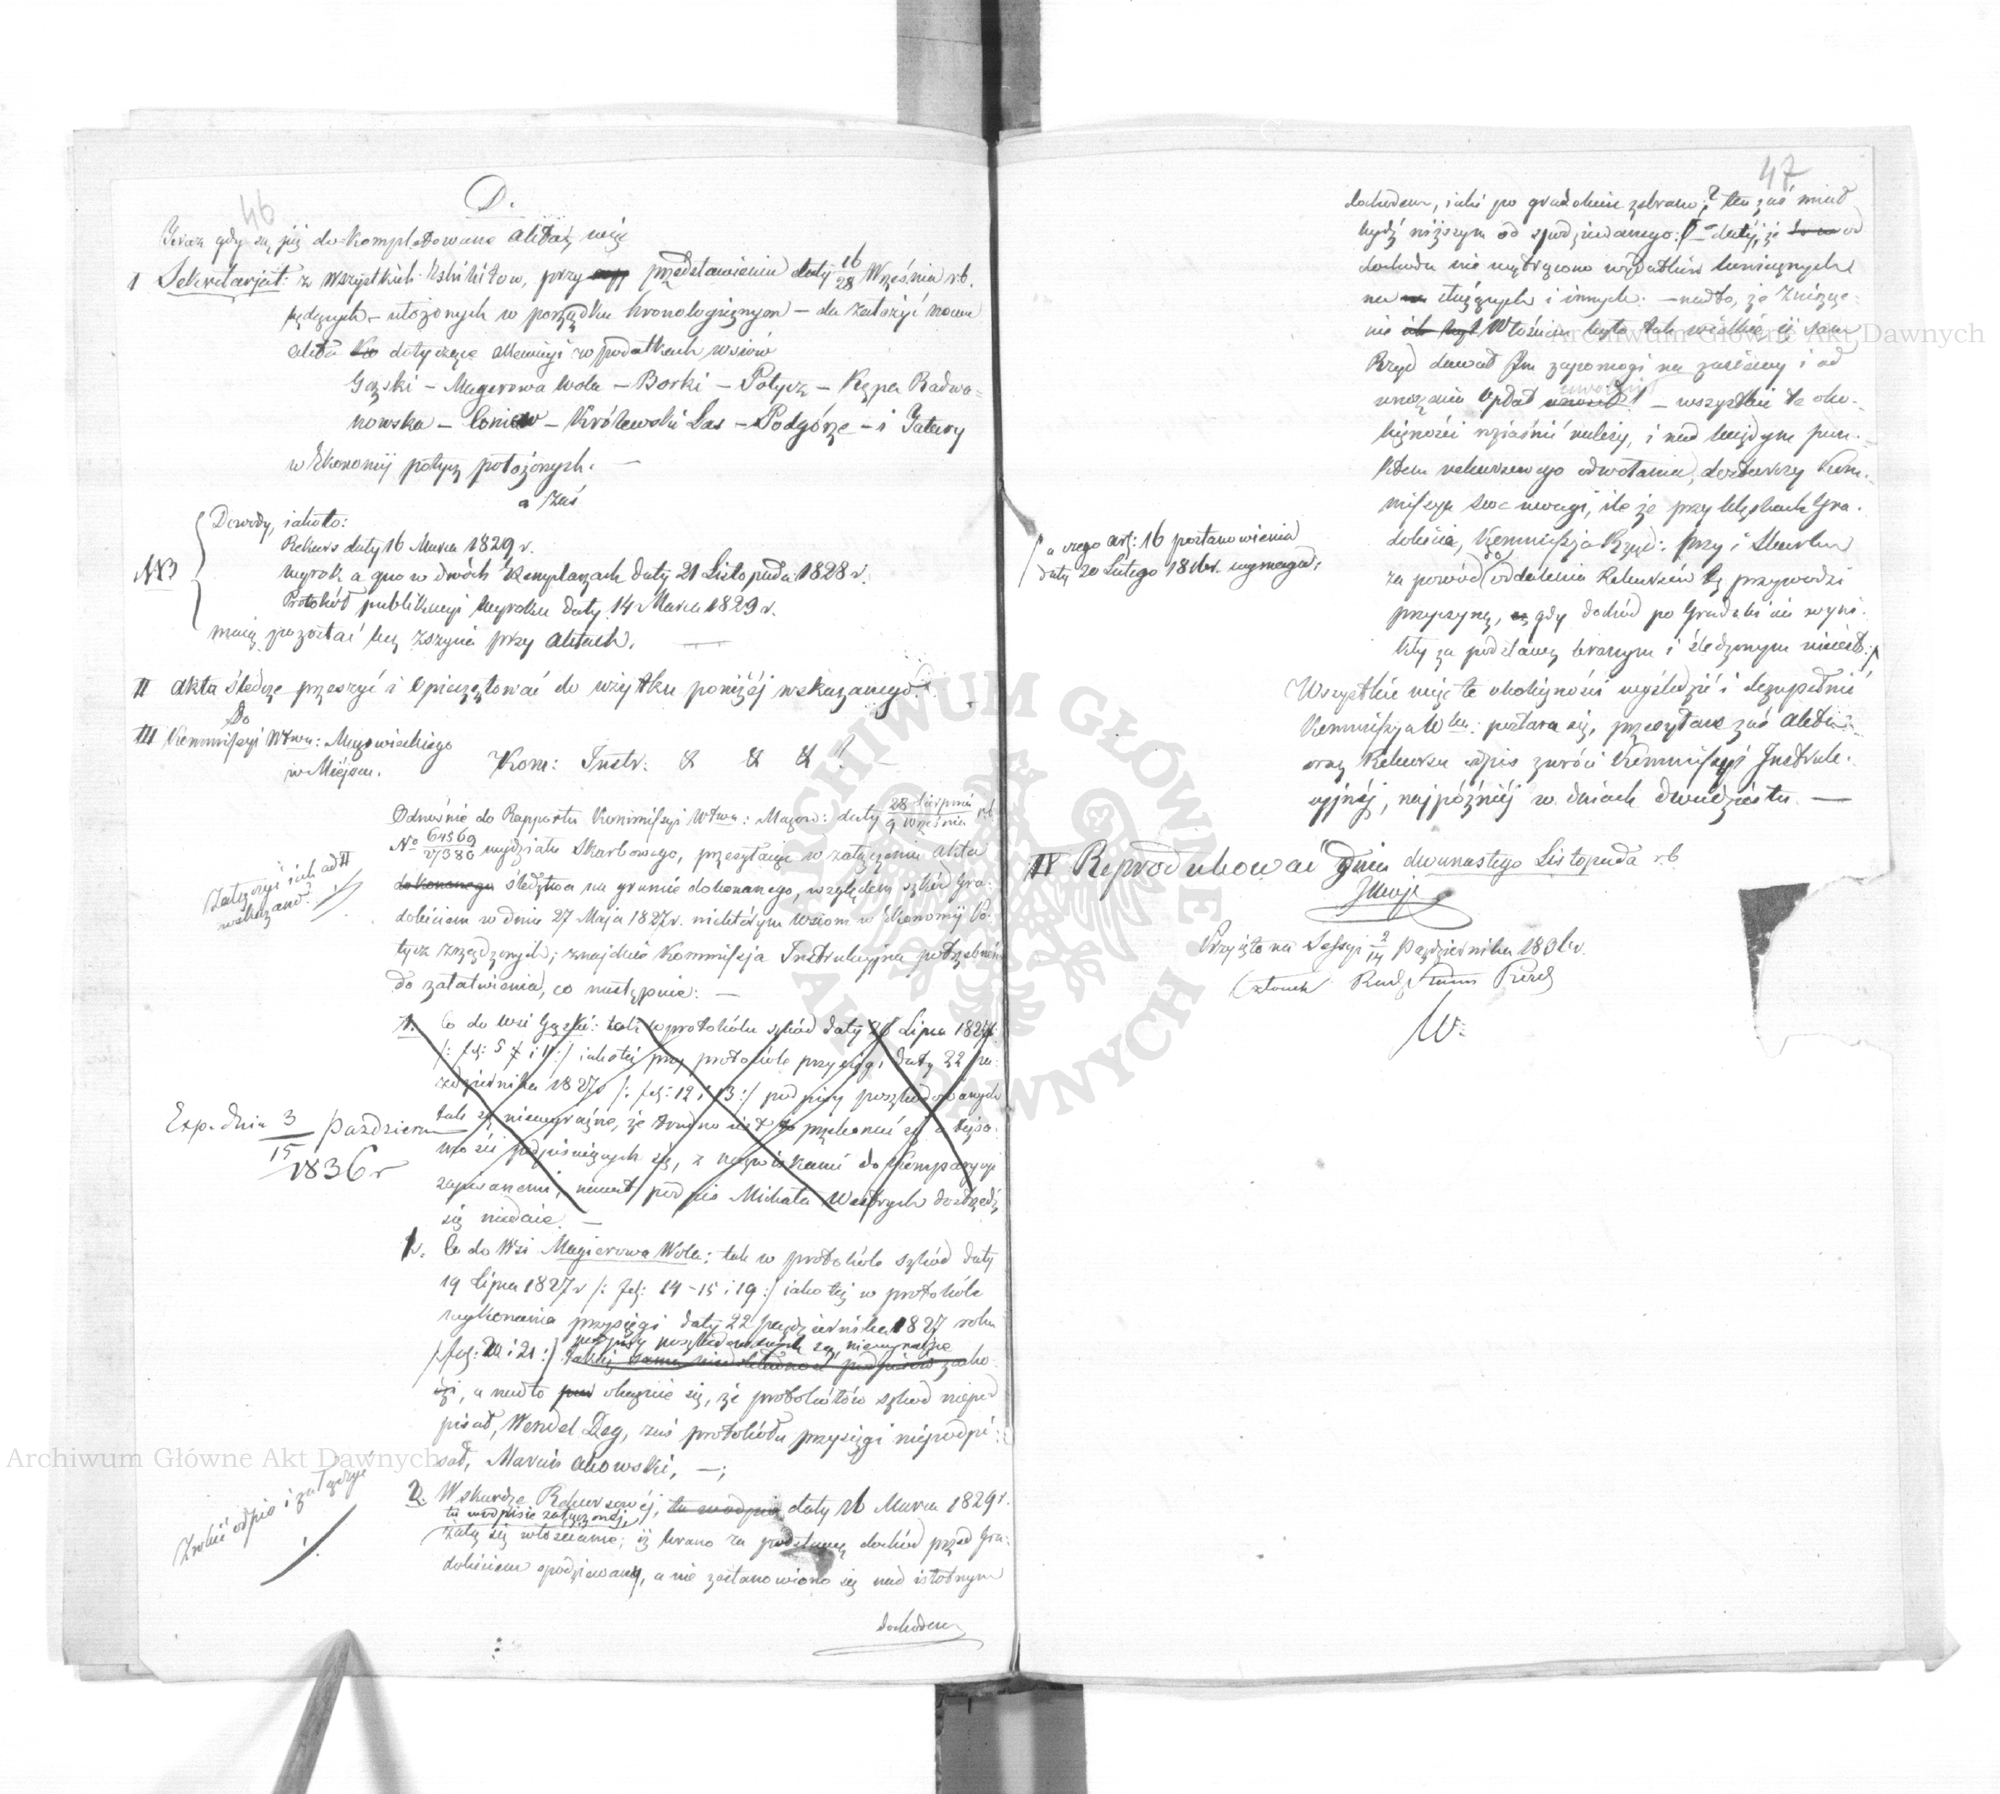 46
D.
Teraz gdy są już do-kompletowane akta, więc
I Sekretarjat: z wszystkich Exhibitow, przy przedstawieniu daty 16/28 Września r.b.
będących – ułożonych w porządku kronologicznym – da założyć nowe
akta dotyczące ulewingi w podatkach wsiów
Gązski – Magerowa Wola – Borki – Potycz – Kępa Radwa-
nowska – Coniew – Królewski Las – Podgórze – i Tatary
w Ekonomij potycz położonych. —
a zaś
NB Dowody, iakoto:
Rekurs daty 16 Marca 1829 r.
wyrok a quo w dwóch Exemplarzach daty 21 Listopada 1828 r.
Protokół publikacyi wyroku daty 14 Marca 1829 r.
maią pozostać bez zszycia przy aktach. —
II Akta śledcze przeszyć i opieczętować do użytku poniżéj wskazanego.
III Do
Kommissyi Wtwa: Mazowieckiego
w Miejscu.
Kom: Instr: & & &
Odnośnie do Rapportu Kommissyi Wtwa: Mazow: daty 28 Sierpnia/9 Września r.b.
No 64569/21380 wydziału Skarbowego, przesyłając w załączeniu akta
dokonanego śledztwa na gruncie dokonanego, względem szkód Gra-
dobiciem w dniu 27 Maja 1827 r. niektórym wsiom w Ekonomij Po-
tycz zrządzonych; znajduie Kommissja Instrukcyjna potrzebném
do załatwienia, co następuie: —
Załączyć ich ad II
wskazane.
1. Co do wsi Gązki: tak w protokóle szkód daty 26 Lipca 1827
/: fol: 5 7 i 11 :/ iakoteż przy protokóle przysięgi daty 22 Pa-
zdziernika 1827 r /: fol: 12 i 13 :/ podpisy poszkodowanych
tak są niewyraźne, że trudno iest przekonać się o tożsa-
mości podpisuiących się, z nazwiskami do komparycyi
zapisanemi, nawet podpis Michała Westrych dostrzedz
się niedaie. —
Exp. dnia 3/15 Października
1836 r
1. Co do Wsi Magierowa Wola; tak w protokóle szkód daty
19 Lipca 1827 r /: fol: 14 – 15 i 19 :/ iakoteż w protokóle
wykonania przysięgi daty 22 Października 1827 roku
podpisy poszkodowanych są niewyraźne
/: fol: 20 i 21 :/ takaż sama niedokładność podpisów zacho-
dzi, a nadto okazuie się, że protokółów szkod niepod
pisał, Wendel Deg, zaś protokółu przysięgi niepodpi-
sał, Marcin Akowski, —;
2. W skardze Rekursowéj, daty 16 Marca 1829 r.
tu w odpisie załączonéj
żalą się włościanie; iż brano za podstawę dochód przed Gra-
dobiciem spodziewany, a nie zastanowiono się nad istotnym
Zrobić odpis i załączyć
dochodem
47
dochodem, iaki po gradobiciu zebrano; ten zaś miał
bydź niższym od spodziewanego; daléj, że od
dochodu nie wytrącono wydatków koniecznych
na służących i innych. — nadto, że zniszcze-
nie Włościan było tak wielkie iż sam
Rząd dawał Im zapomogi na zasiewy i od
wnoszenia opłat uwolnił — wszystkie te oko-
liczności wyiaśnić należy, i nad każdym pun-
ktem rekursowego odwołania, dostarczy Kom-
missya swe uwagi, ile że przy klęskach Gra-
dobicia, Kommissja Rząd: Przy: i Skarbu
za powód do oddalenia Rekursów tę przywodzi
przyczynę, gdy dochód po Gradobiciu wyni-
kły za podstawę branym i śledzonym nie iest :/
/: a czego art: 16 postanowienia
daty 20 Lutego 1816 r. wymaga :/
Wszystkie więc te okoliczności wyśledzić i dezupełnić
Kommissya Wtwa: postara się, przesyłane zaś Akta
oraz Rekursu odpis zwróci Kommissyi Instruk-
cyjnéj, najpóźniéj w dniach dwudziestu. —
IV Reprodukować Dnia dwunastego Listopada r.b.
Przyjęto na Sessyi 2/14 Października 1836 r.
Członek Rady Stanu Prezd
Archiwum Główne Akt Dawnych
Archiwum Główne Akt Dawnych
ARCHIWUM GŁÓWNE AKT DAWNYCH